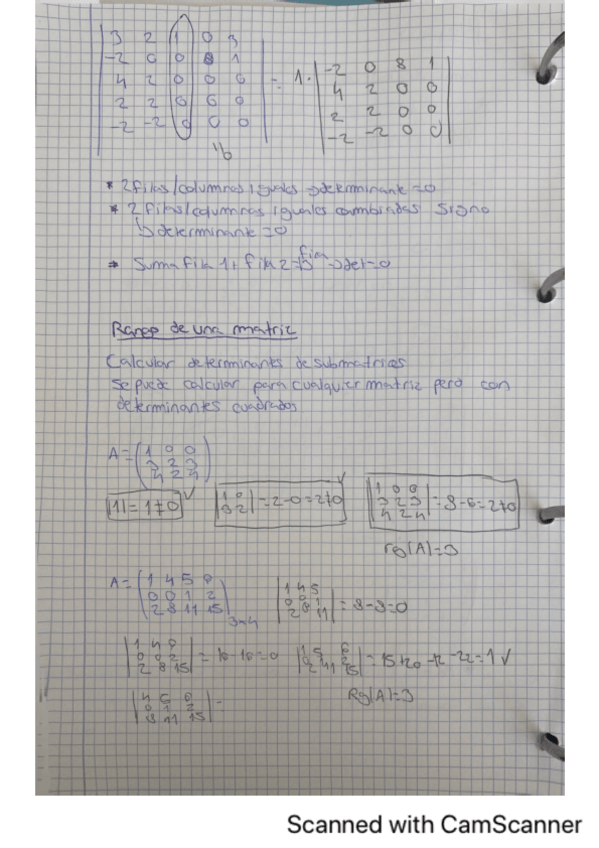 3 2 1 0 3
-2 0 0 8 1 -2 0 8 1
4 2 0 0 0 = 1· 4 2 0 0
2 2 0 0 0 2 2 0 0
-2 -2 0 0 0 -2 -2 0 0
* 2 filas/columnas iguales → determinante = 0
* 2 filas/columnas iguales cambiadas signo
↳ determinante = 0
* Suma fila 1 + fila 2 = fila 3 → det = 0
Rango de una matriz
Calcular determinantes de submatrices
Se puede calcular para cualquier matriz pero con
determinantes cuadrados
A = (1 0 0
3 2 3
4 2 4)
|1| = 1 ≠ 0 ✓ |1 0 = 2 - 0 = 2 ≠ 0 ✓ |1 0 0
3 2| 3 2 3 = 8 - 6 = 2 ≠ 0
4 2 4|
rg(A) = 3
A = (1 4 5 0 |1 4 5
0 0 1 2 0 0 1 = 8 - 8 = 0
2 8 11 15) 3x4 2 8 11|
|1 4 0 |1 5 0
0 0 2 = 16 - 16 = 0 0 1 2 = 15 + 20 - 22 = ✓
2 8 15| 2 11 15|
|4 5 0 Rg(A) = 3
0 1 2 =
8 11 15|
Scanned with CamScanner